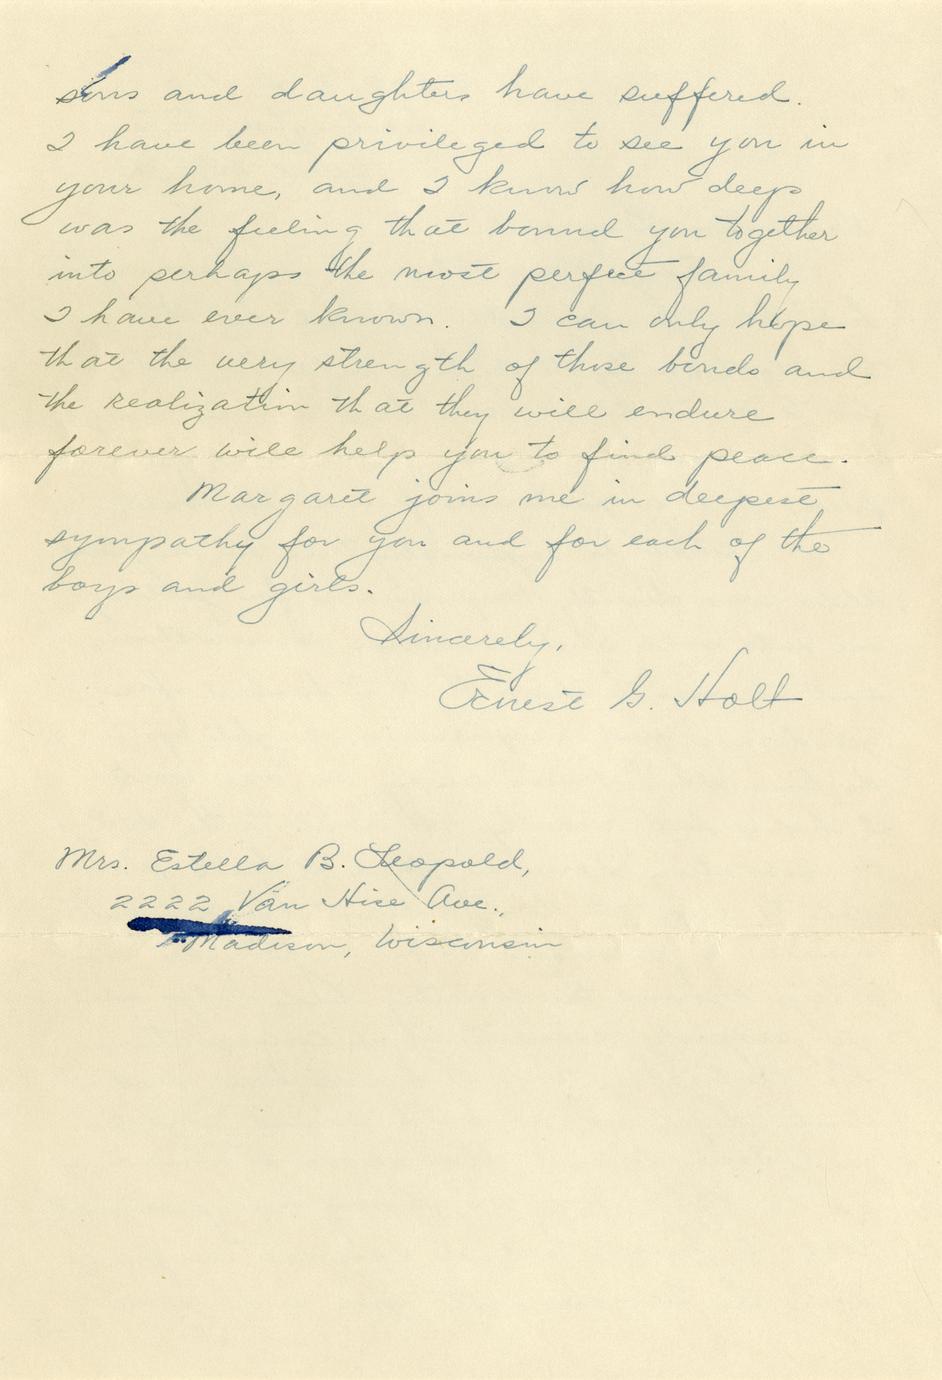 sons and daughters have suffered.
I have been privileged to see you in
your home, and I know how deep
was the feeling that bound you together
into perhaps the most perfect family
I have ever known. I can only hope
that the very strength of those bonds and
the realization that they will endure
forever will help you to find peace.
Margaret joins me in deepest
sympathy for you and for each of the
boys and girls.
Sincerely,
Ernest G. Holt
Mrs. Estella B. Leopold,
2222 Van Hise Ave.,
Madison, Wisconsin